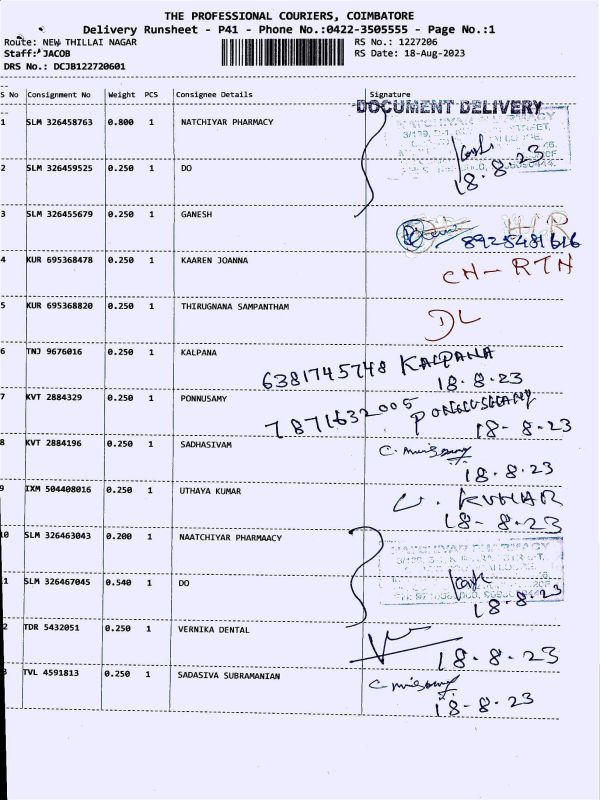 THE PROFESSIONAL COURIERS, COIMBATORE
Delivery Runsheet - P41 - Phone No.:0422-3505555 - Page No.:1
Route: NEW THILLAI NAGAR RS No.: 1227206
Staff: JACOB RS Date: 18-Aug-2023
DRS No.: DCJB122720601
S No Consignment No Weight PCS Consignee Details Signature
DOCUMENT DELIVERY
1 SLM 326458763 0.800 1 NATCHIYAR PHARMACY
18-8-23
2 SLM 326459525 0.250 1 DO
3 SLM 326455679 0.250 1 GANESH
8925481616
4 KUR 695368478 0.250 1 KAAREN JOANNA CH-RTH
5 KUR 695368820 0.250 1 THIRUGNANA SAMPANTHAM DL
6 TNJ 9676016 0.250 1 KALPANA 6381745748 KALPANA
18.8.23
7 KVT 2884329 0.250 1 PONNUSAMY 7871632005
18-8-23
8 KVT 2884196 0.250 1 SADHASIVAM
18.8.23
9 IXM 504408016 0.250 1 UTHAYA KUMAR U. KUMAR
18-8-23
10 SLM 326463043 0.200 1 NAATCHIYAR PHARMAACY
NATCHIYAR PHARMACY
1 SLM 326467045 0.540 1 DO
18.8.23
2 TDR 5432051 0.250 1 VERNIKA DENTAL
18.8.23
3 TVL 4591813 0.250 1 SADASIVA SUBRAMANIAN
18-8-23